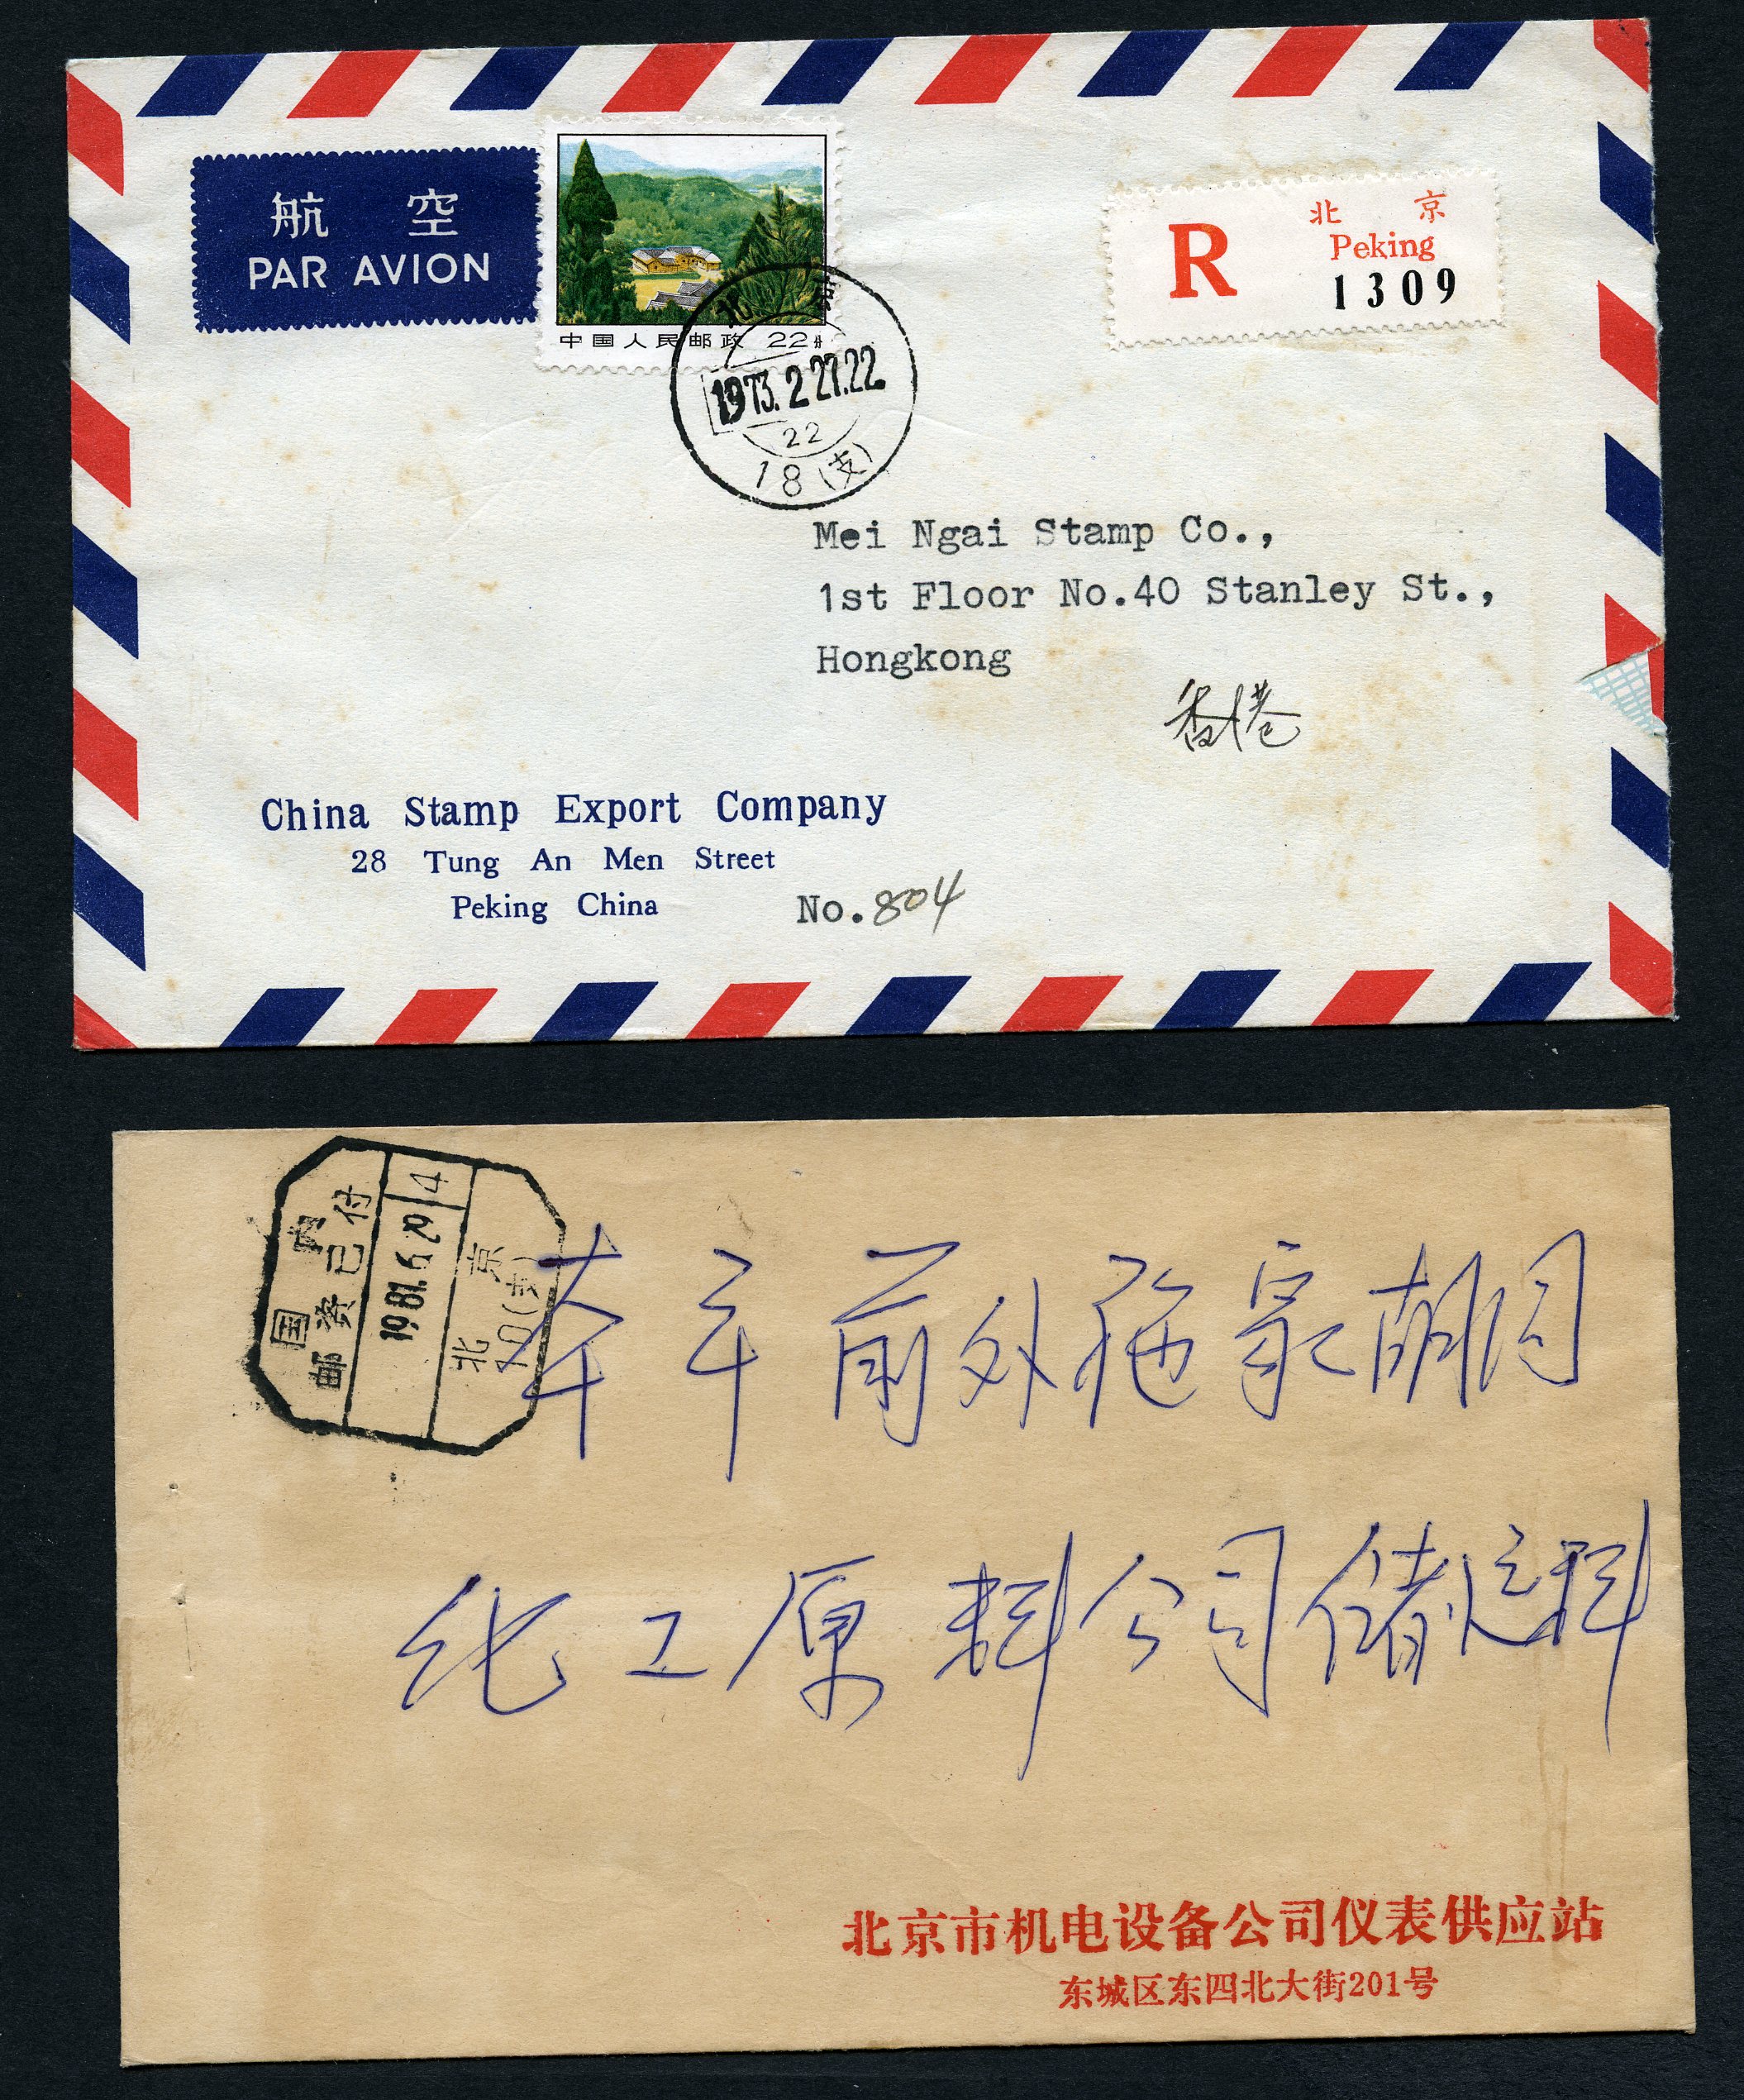 航 空
PAR AVION
中国人民邮政 22分
北京
1973.2.27.22.
22
18(支)
北 京
R Peking
1309
Mei Ngai Stamp Co.,
1st Floor No.40 Stanley St.,
Hongkong
香港
China Stamp Export Company
28 Tung An Men Street
Peking China No.804
国内
邮资已付
1981.6.20 4
北京
10(支)
本市前外施家胡同
化工原料公司储运科
北京市机电设备公司仪表供应站
东城区东四北大街201号